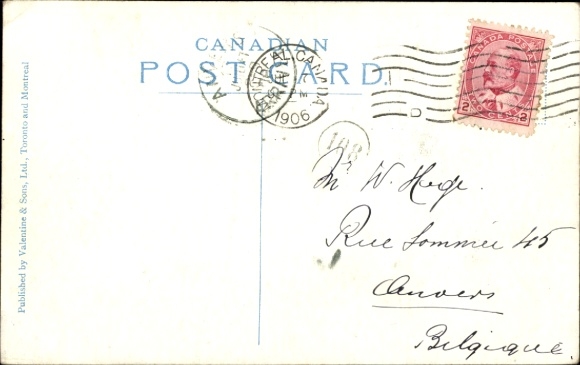 CANADIAN
POST CARD.
MONTREAL CANADA
1906
CANADA POSTAGE
2 CENTS 2
108
Mr W. Hege.
Rue Sommer 45
Anvers
Belgique.
Published by Valentine & Sons, Ltd., Toronto and Montreal